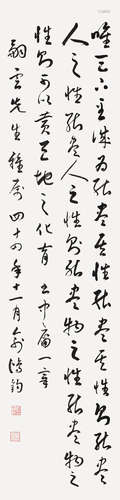 唯天下至誠為能盡其性能盡其性則能盡
人之性能盡人之性則能盡物之性能盡物之
性則可以贊天地之化育 中庸一章
雲先生雅屬 四十四年十一月俞鴻鈞